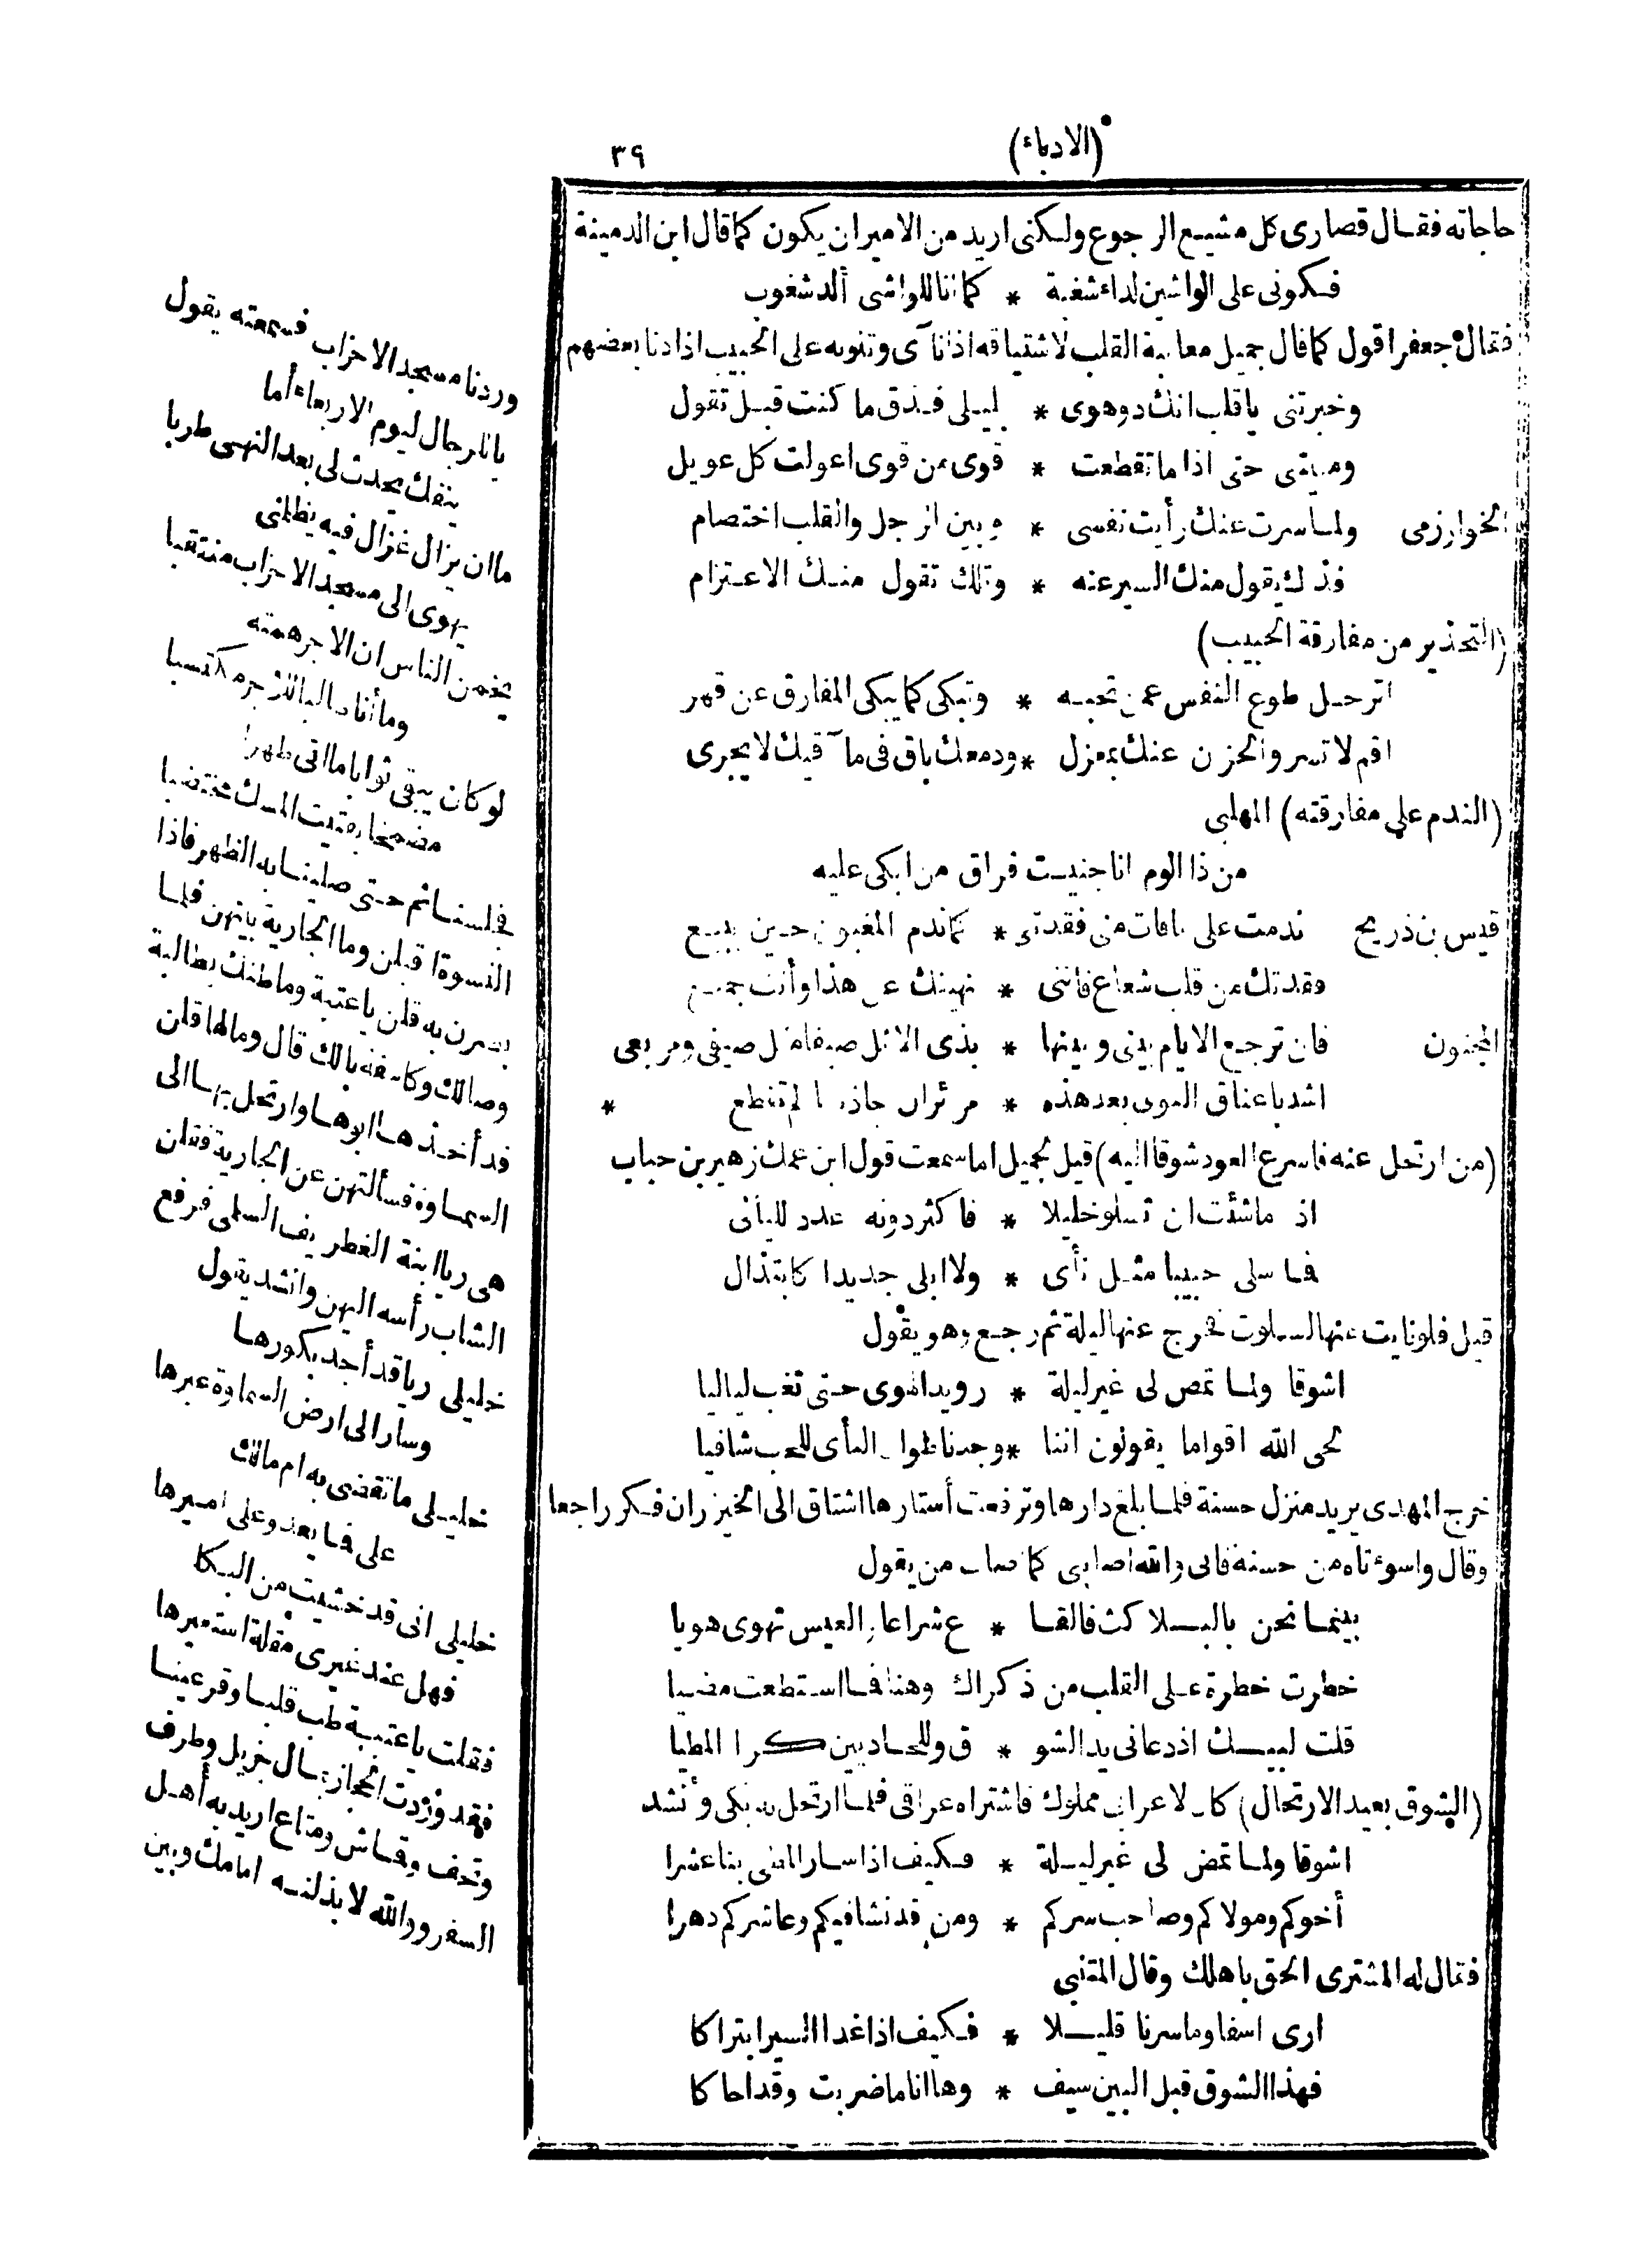 (الادباء)
٣٩
حاجاته فقال قصارى كل مشيع الرجوع ولكنى اريد من الامير ان يكون كما قال ابن الدمينة
فكونى على الواشين لداء شغبة * كما انا للواشى ألد شغوب
فقال جعفر اقول كما قال جميل معاتبة القلب لاشتياقه اذا نآى وتنويه على الحبيب اذا دنا بعضهم
وخبرتنى ياقلب انك ذوهوى * بليلى فذق ما كنت قبل تقول
ومنيتنى حتى اذا ما تقطعت * قوى من قوى اعولت كل عويل
الخوارزمى ولما سرت عنك رأيت نفسى * وبين ارجل والقلب اختصام
فذلك يقول منك السير عنه * وتلك تقول منك الاعتزام
(التحذير من مفارقة الحبيب)
اترحل طوع النفس عمن تحبه * وتبكى كما يبكى المفارق عن قهر
اقم لا تسر والحزن عنك بمعزل * ودمعك باق فى مآقيك لا يجرى
(الندم على مفارقته) المهلبى
من ذا الوم انا جنيت فراق من ابكى عليه
قيس بن ذريح ندمت على مافات منى فقدتنى * كما ندم المغبون حين يبيع
فقدتك من قلب شعاع فاننى * نهيتك عن هذا وأنت جميع
المجنون فان ترجع الايام بينى وبينها * بذى الاثل صيفا مثل صيفى ومربعى
اشد باعناق النوى بعد هذه * مرائر ان جاذبتها لم تقطع *
(من ارتحل عنه فاسرع العود شوقا اليه) قيل لجميل اما سمعت قول ابن عمك زهير بن حباب
اذا ماشئت ان تسلو خليلا * فاكثر دونه عدد الليالى
فما سلى حبيبا مثل نأى * ولا ابلى جديدا كابتذال
قيل فلو نايت عنها لسلوت فخرج عنها ليلة ثم رجع وهو يقول
اشوقا ولما تمض لى غير ليلة * رويد الهوى حتى تغب لياليا
لحى الله اقواما يقولون اننا * وجدنا طوال النأى للحب شافيا
خرج المهدى يريد منزل حسنة فلما بلغ دارها وترفعت أستارها اشتاق الى الخيزران فكر راجعا
وقال واسوءتاه من حسنة فانى والله اصابنى كما اصاب من يقول
بينما نحن بالبلاكث فالقا * ع شراعا والعيس تهوى هويا
خطرت خطرة على القلب من ذكراك وهنا فما استطعت مضيا
قلت لبيك اذ دعانى يد الشو * ق وللحاديين كرا المطيا
(الشوق بعيد الارتحال) كان لاعرابى مملوك فاشتراه عراقى فلما ارتحل به بكى وأنشد
اشوقا ولما تمض لى غير ليلة * فكيف اذا سار المطى بنا عشرا
أخوكم ومولاكم وصاحب سركم * ومن قد نشا فيكم وعاشركم دهرا
فقال له المشترى الحق باهلك وقال المتنبى
ارى اسفا وما سرنا قليلا * فكيف اذا غدا السير ابتراكا
فهذا الشوق قبل البين سيف * وها انا ما ضربت وقد احاكا
وردنا مسجد الاحزاب فسمعته يقول
يا للرجال ليوم الاربعاء أما
ينفك يحدث لى بعد النهى طربا
ما ان يزال غزال فيه يظلمنى
يهوى الى مسجد الاحزاب منتقبا
يخبر الناس ان الاجر همته
وما أنا طالبا للاجر مكتسبا
لو كان يبغى ثوابا ما اتى ظهرا
مضمخا بفتيت المسك مختضبا
فجلسنا ثم حتى صلينا به الظهر فاذا
النسوة اقبلن وما الجارية بينهن فلما
بصرن به قلن ياعتبة وما ظنك بطالبة
وصالك وكاسفة بالك قال ومالها قلن
قد أخذها ابوها وارتحل بها الى
السماوة فسألتهن عن الجارية فقلن
هى ريا ابنة الغطريف السلمى فرفع
الشاب رأسه اليهن وانشد يقول
خليلى ريا قد أجد بكورها
وسار الى ارض السماوة عيرها
خليلى ما تقضى به ام مالك
على فما يعدو على اميرها
خليلى انى قد خشيت من البكا
فهل عند غيرى مقلة استعيرها
فقلت ياعتبة طب قلبا وقر عينا
فقد وردت الحجاز بمال جزيل وطرف
وتحف وقماش ومتاع اريد به أهل
السفر ووالله لا بذلنه امامك وبين